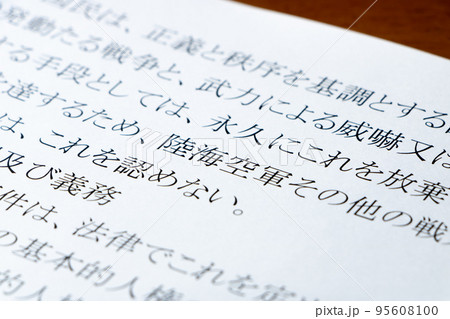 国民は、正義と秩序を基調とする
発動たる戦争と、武力による威嚇又は
る手段としては、永久にこれを放棄
を達するため、陸海空軍その他の戦
は、これを認めない。
及び義務
件は、法律でこれを定
の基本的人権
的人
95608100